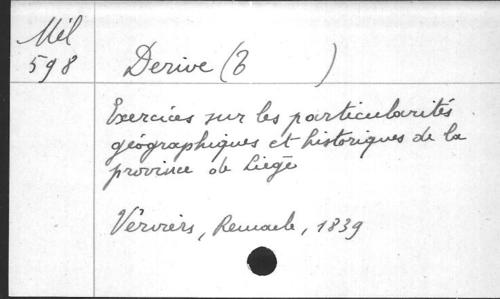 Mél
598
Derive (B )
Exercices sur les particularités
géographiques et historiques de la
province de Liège
Verviers, Remacle, 1839